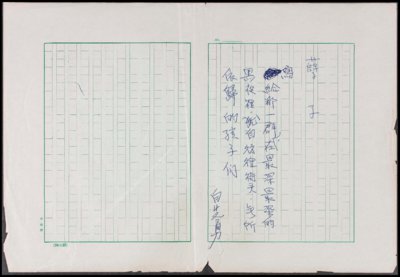 孽子
寫給那一群，在最深最深的
黑夜裡，獨自徬徨街頭，無所
依歸的孩子們
白先勇